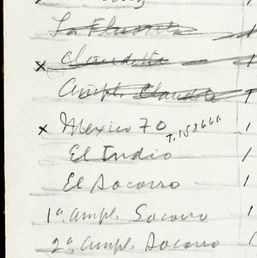 La Florida
x Claudetta
Ampl. Claudetta
x Mexico 70 T.152666
El Indio
El Socorro
1ª ampl. Socorro
2ª ampl. Socorro